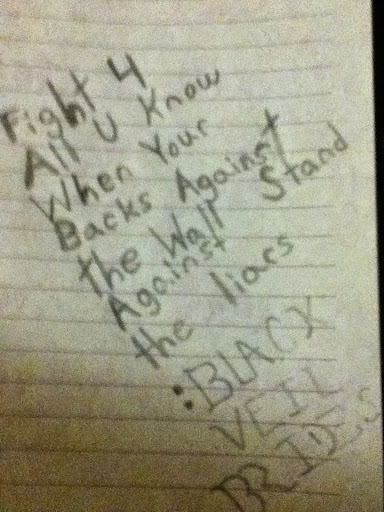 Fight 4
All U Know
When Your
Backs Against
the Wall Stand
Against
the liars
:BLACK
VEIL
BRIDES